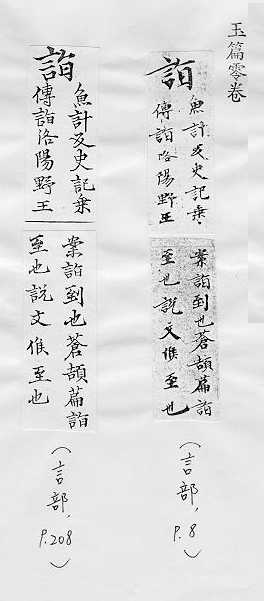 玉篇零卷
詣
魚計反史記乗
傳詣洛陽野王
案詣到也蒼頡篇詣
至也説文候至也
(言部,
P.8)
詣
魚計反史記乗
傳詣洛陽野王
案詣到也蒼頡篇詣
至也説文候至也
(言部,
P.208)